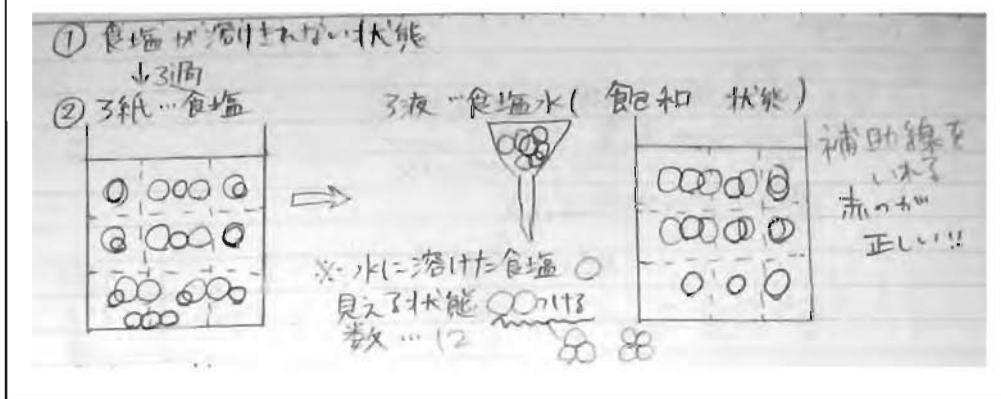 ① 食塩が溶けきれない状態
↓ろ過
② ろ紙…食塩
ろ液…食塩水( 飽和 状態)
※水に溶けた食塩 ○
見える状態 ○○つける
数…12
補助線を
いれる
赤のが
正しい!!